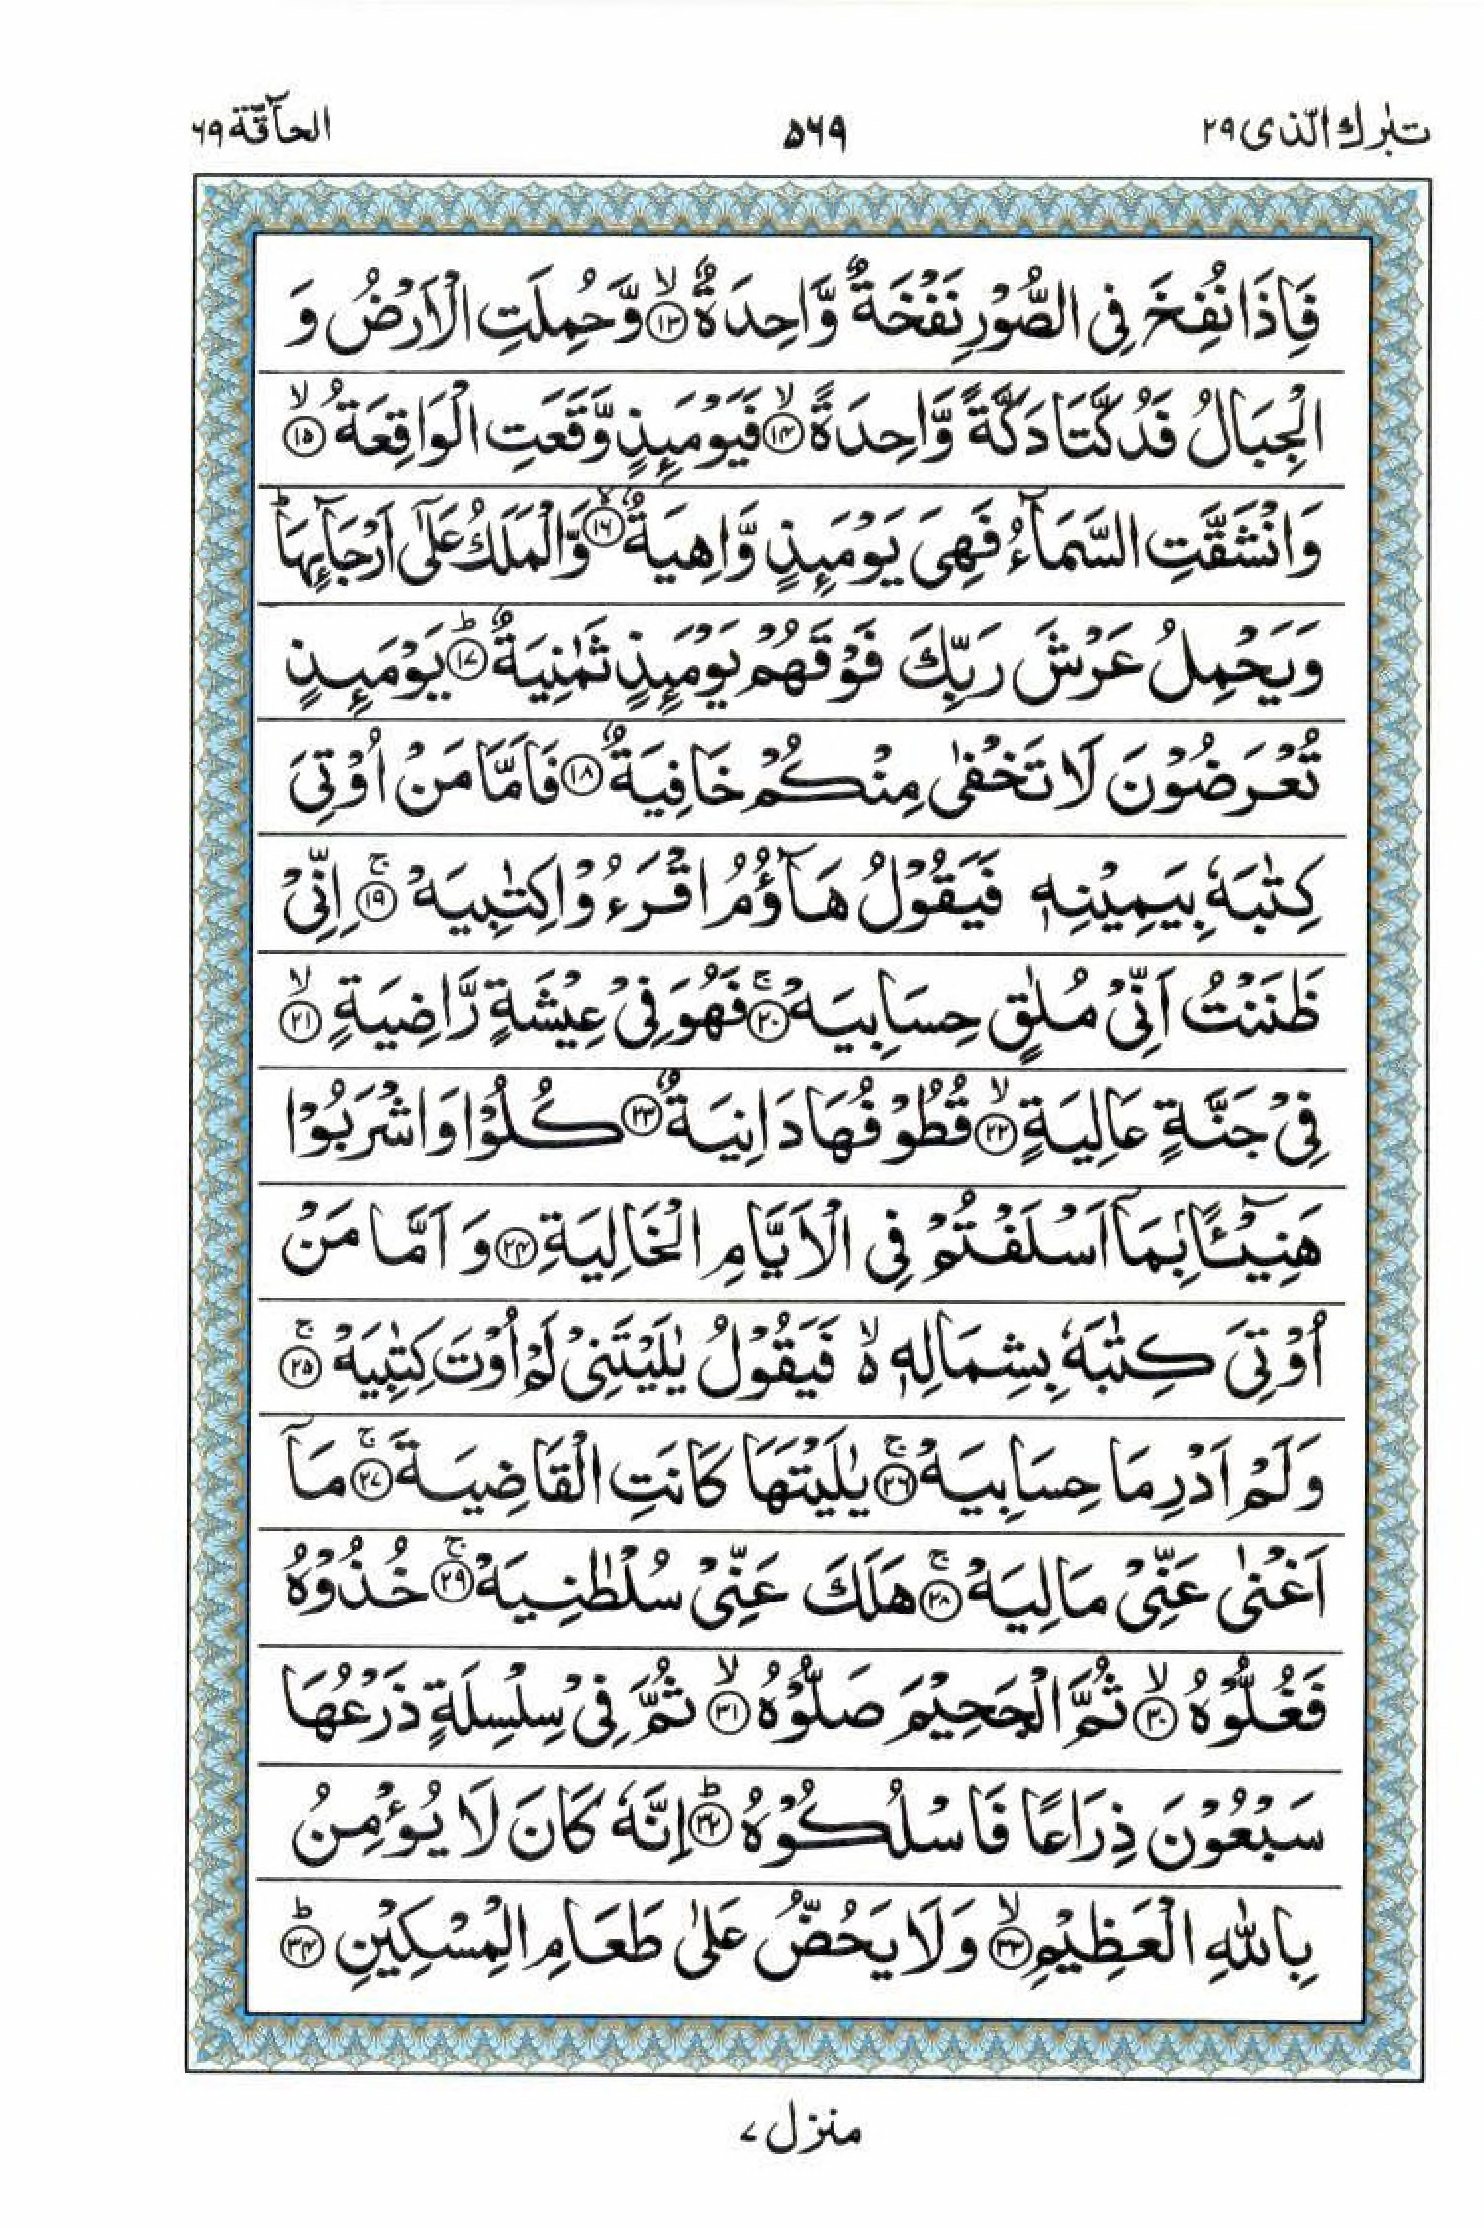 تبٰرك الّذی ۲۹
۵۶۹
الحآقّة ۶۹
فَاِذَا نُفِخَ فِی الصُّوْرِ نَفْخَةٌ وَّاحِدَةٌ ۙ﴿۱۳﴾ وَّحُمِلَتِ الْاَرْضُ وَ
الْجِبَالُ فَدُكَّتَا دَكَّةً وَّاحِدَةً ۙ﴿۱۴﴾ فَیَوْمَىِٕذٍ وَّقَعَتِ الْوَاقِعَةُ ۙ﴿۱۵﴾
وَانْشَقَّتِ السَّمَآءُ فَهِیَ یَوْمَىِٕذٍ وَّاهِیَةٌ ۙ﴿۱۶﴾ وَّالْمَلَكُ عَلٰۤی اَرْجَآىِٕهَا ؕ
وَیَحْمِلُ عَرْشَ رَبِّكَ فَوْقَهُمْ یَوْمَىِٕذٍ ثَمٰنِیَةٌ ؕ﴿۱۷﴾ یَوْمَىِٕذٍ
تُعْرَضُوْنَ لَا تَخْفٰی مِنْكُمْ خَافِیَةٌ ﴿۱۸﴾ فَاَمَّا مَنْ اُوْتِیَ
كِتٰبَهٗ بِیَمِیْنِهٖ فَیَقُوْلُ هَآؤُمُ اقْرَءُوْا كِتٰبِیَهْ ۚ﴿۱۹﴾ اِنِّیْ
ظَنَنْتُ اَنِّیْ مُلٰقٍ حِسَابِیَهْ ۚ﴿۲۰﴾ فَهُوَ فِیْ عِیْشَةٍ رَّاضِیَةٍ ۙ﴿۲۱﴾
فِیْ جَنَّةٍ عَالِیَةٍ ۙ﴿۲۲﴾ قُطُوْفُهَا دَانِیَةٌ ﴿۲۳﴾ كُلُوْا وَاشْرَبُوْا
هَنِیْٓئًۢا بِمَاۤ اَسْلَفْتُمْ فِی الْاَیَّامِ الْخَالِیَةِ ﴿۲۴﴾ وَ اَمَّا مَنْ
اُوْتِیَ كِتٰبَهٗ بِشِمَالِهٖ ۬ۙ فَیَقُوْلُ یٰلَیْتَنِیْ لَمْ اُوْتَ كِتٰبِیَهْ ۚ﴿۲۵﴾
وَلَمْ اَدْرِ مَا حِسَابِیَهْ ۚ﴿۲۶﴾ یٰلَیْتَهَا كَانَتِ الْقَاضِیَةَ ۚ﴿۲۷﴾ مَاۤ
اَغْنٰی عَنِّیْ مَالِیَهْ ۚ﴿۲۸﴾ هَلَكَ عَنِّیْ سُلْطٰنِیَهْ ۚ﴿۲۹﴾ خُذُوْهُ
فَغُلُّوْهُ ۙ﴿۳۰﴾ ثُمَّ الْجَحِیْمَ صَلُّوْهُ ۙ﴿۳۱﴾ ثُمَّ فِیْ سِلْسِلَةٍ ذَرْعُهَا
سَبْعُوْنَ ذِرَاعًا فَاسْلُكُوْهُ ؕ﴿۳۲﴾ اِنَّهٗ كَانَ لَا یُؤْمِنُ
بِاللّٰهِ الْعَظِیْمِ ۙ﴿۳۳﴾ وَلَا یَحُضُّ عَلٰی طَعَامِ الْمِسْكِیْنِ ؕ﴿۳۴﴾
منزل ۷